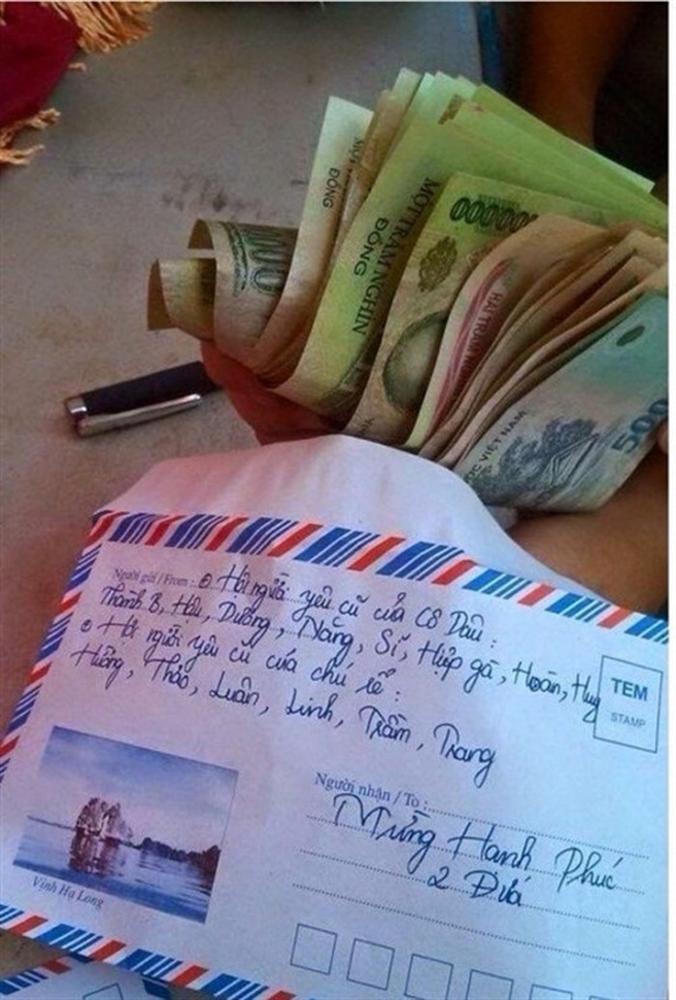 MỘT
ĐỒNG
000
MỘT TRĂM NGHÌN
ĐỒNG
100000
HAI TRĂM
VIỆT NAM
500
Người gửi / From : Hội người yêu cũ của Cô Dâu :
Thành B, Hậu, Dưỡng, Năng, Sĩ, Hiệp gà, Hoàn, Huy
Hội người yêu cũ của chú rể :
Hường, Thảo, Luân, Linh, Trâm, Trang
TEM
STAMP
Người nhận / To :
Mừng Hạnh Phúc
2 Đứa
Vịnh Hạ Long